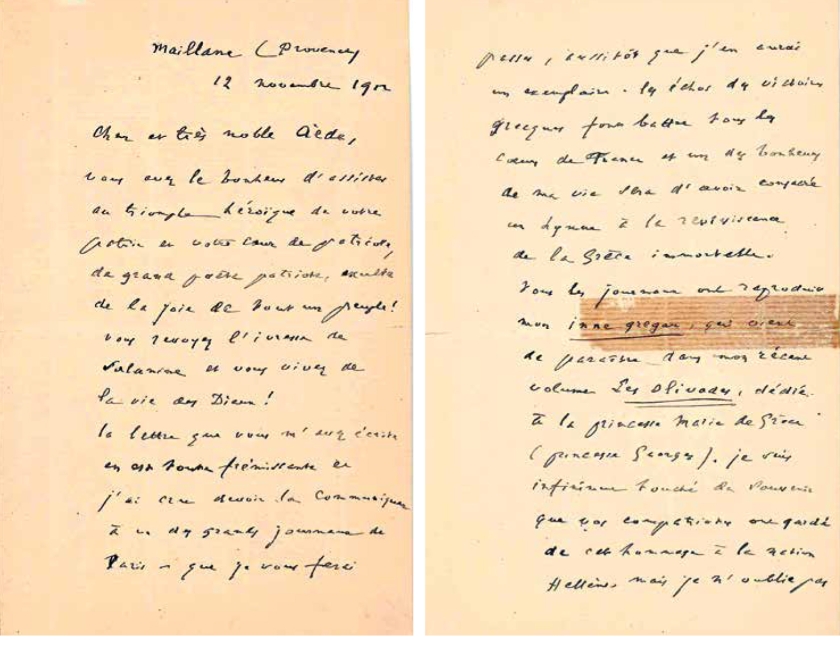 Maillane (Provence)
12 novembre 1912
Cher et très noble Aède,
vous avez le bonheur d'assister
au triomphe héroïque de votre
patrie et votre cœur de patriote,
de grand poète patriote, exulte
de la joie de tout un peuple!
vous revoyez l'ivresse de
Salamine et vous vivez de
la vie des Dieux!
la lettre que vous m'avez écrite
en est toute frémissante et
j'ai cru devoir la communiquer
à un des grands journaux de
Paris - que je vous ferai
passer, aussitôt que j'en aurai
un exemplaire. les échos des victoires
grecques font battre tous les
cœurs de France et un des bonheurs
de ma vie sera d'avoir consacré
un hymne à la reviviscence
de la Grèce immortelle.
tous les journaux ont reproduit
mon inne gregau, qui vient
de paraître dans mon récent
volume Les Olivades, dédié
à la princesse Marie de Grèce
(princesse Georges). je suis
infiniment touché du souvenir
que vos compatriotes ont gardé
de cet hommage à la nation
Hellène, mais je n'oublie pas